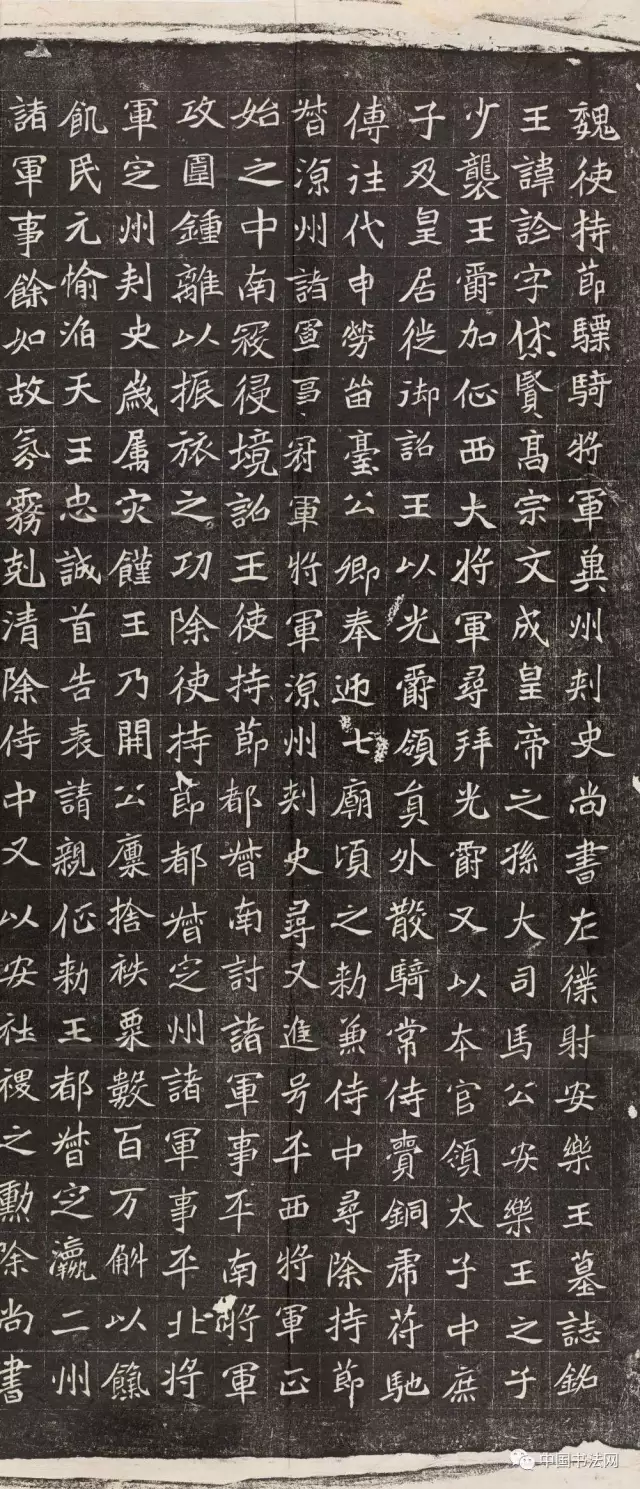 魏使持節驃騎將軍冀州刺史尚書左僕射安樂王墓誌銘
王諱詮字休賢高宗文成皇帝之孫大司馬公安樂王之子
少襲王爵加征西大將軍尋拜光爵又以本官領太子中庶
子及皇居徙御詔王以光爵領員外散騎常侍賫銅虎符馳
傳往代申勞留臺公卿奉迎七廟頃之敕兼侍中尋除持節
督涼州諸軍事冠軍將軍涼州刺史尋又進号平西將軍正
始之中南寇侵境詔王使持節都督南討諸軍事平南將軍
攻圍鍾離以振旅之功除使持節都督定州諸軍事平北將
軍定州刺史歲屬灾饉王乃開公廩捨秩粟數百万斛以餼
飢民元愉滔天王忠誠首告表請親征敕王都督定瀛二州
諸軍事餘如故氛霧剋清除侍中又以安社稷之勳除尚書
中国书法网